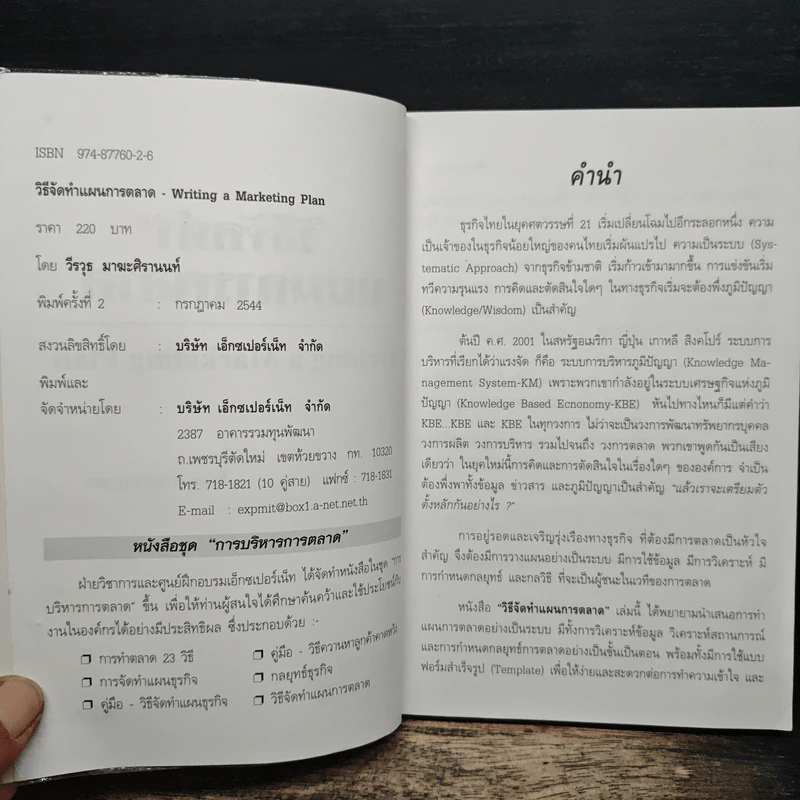 ISBN 974-87760-2-6
วิธีจัดทำแผนการตลาด - Writing a Marketing Plan
ราคา 220 บาท
โดย วีรวุธ มาฆะศิรานนท์
พิมพ์ครั้งที่ 2 : กรกฎาคม 2544
สงวนลิขสิทธิ์โดย : บริษัท เอ็กซเปอร์เน็ท จำกัด
พิมพ์และ
จัดจำหน่ายโดย : บริษัท เอ็กซเปอร์เน็ท จำกัด
2387 อาคารรวมทุนพัฒนา
ถ.เพชรบุรีตัดใหม่ เขตห้วยขวาง กท. 10320
โทร. 718-1821 (10 คู่สาย) แฟกซ์ : 718-1831
E-mail : expmit@box1.a-net.net.th
หนังสือชุด “การบริหารการตลาด”
ฝ่ายวิชาการและศูนย์ฝึกอบรมเอ็กซเปอร์เน็ท ได้จัดทำหนังสือในชุด “การ
บริหารการตลาด” ขึ้น เพื่อให้ท่านผู้สนใจได้ศึกษาค้นคว้าและใช้ประโยชน์กับ
งานในองค์กรได้อย่างมีประสิทธิผล ซึ่งประกอบด้วย :-
❒ การทำตลาด 23 วิธี
❒ การจัดทำแผนธุรกิจ
❒ คู่มือ - วิธีจัดทำแผนธุรกิจ
❒ คู่มือ - วิธีควานหาลูกค้าคาดหวัง
❒ กลยุทธ์ธุรกิจ
❒ วิธีจัดทำแผนการตลาด
คำนำ
ธุรกิจไทยในยุคศตวรรษที่ 21 เริ่มเปลี่ยนโฉมไปอีกระลอกหนึ่ง ความ
เป็นเจ้าของในธุรกิจน้อยใหญ่ของคนไทยเริ่มผันแปรไป ความเป็นระบบ (Sys-
tematic Approach) จากธุรกิจข้ามชาติ เริ่มก้าวเข้ามามากขึ้น การแข่งขันเริ่ม
ทวีความรุนแรง การคิดและตัดสินใจใดๆ ในทางธุรกิจเริ่มจะต้องพึ่งภูมิปัญญา
(Knowledge/Wisdom) เป็นสำคัญ
ต้นปี ค.ศ. 2001 ในสหรัฐอเมริกา ญี่ปุ่น เกาหลี สิงคโปร์ ระบบการ
บริหารที่เรียกได้ว่าแรงจัด ก็คือ ระบบการบริหารภูมิปัญญา (Knowledge Ma-
nagement System-KM) เพราะพวกเขากำลังอยู่ในระบบเศรษฐกิจแห่งภูมิ
ปัญญา (Knowledge Based Ecnonomy-KBE) หันไปทางไหนก็มีแต่คำว่า
KBE...KBE และ KBE ในทุกวงการ ไม่ว่าจะเป็นวงการพัฒนาทรัพยากรบุคคล
วงการผลิต วงการบริหาร รวมไปจนถึง วงการตลาด พวกเขาพูดกันเป็นเสียง
เดียวว่า ในยุคใหม่นี้การคิดและการตัดสินใจในเรื่องใดๆ ขององค์การ จำเป็น
ต้องพึ่งพาทั้งข้อมูล ข่าวสาร และภูมิปัญญาเป็นสำคัญ “แล้วเราจะเตรียมตัว
ตั้งหลักกันอย่างไร ?”
การอยู่รอดและเจริญรุ่งเรืองทางธุรกิจ ที่ต้องมีการตลาดเป็นหัวใจ
สำคัญ จึงต้องมีการวางแผนอย่างเป็นระบบ มีการใช้ข้อมูล มีการวิเคราะห์ มี
การกำหนดกลยุทธ์ และกลวิธี ที่จะเป็นผู้ชนะในเวทีของการตลาด
หนังสือ “วิธีจัดทำแผนการตลาด” เล่มนี้ ได้พยายามนำเสนอการทำ
แผนการตลาดอย่างเป็นระบบ มีทั้งการวิเคราะห์ข้อมูล วิเคราะห์สถานการณ์
และการกำหนดกลยุทธ์การตลาดอย่างเป็นขั้นเป็นตอน พร้อมทั้งมีการใช้แบบ
ฟอร์มสำเร็จรูป (Template) เพื่อให้ง่ายและสะดวกต่อการทำความเข้าใจ และ